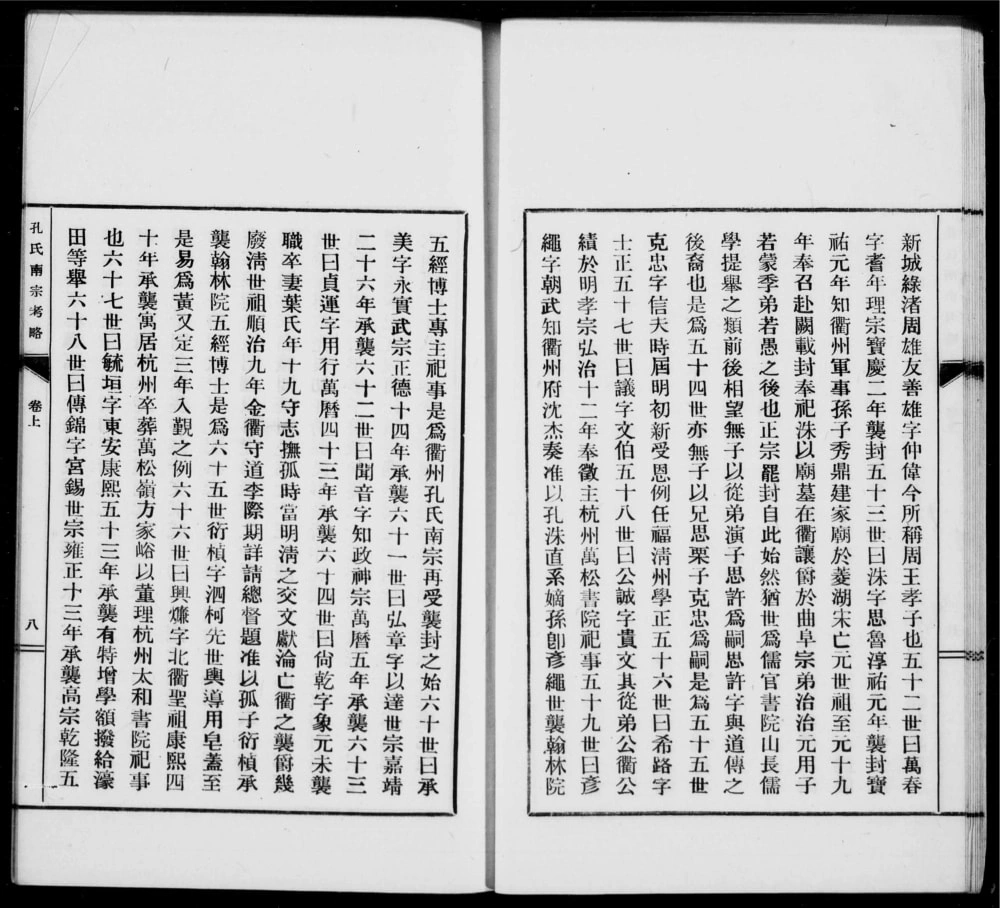 新城綠渚周雄友善雄字仲偉今所稱周王孝子也五十二世曰萬春
字耆年理宗寶慶二年襲封五十三世曰洙字思魯淳祐元年襲封寶
祐元年知衢州軍事孫子秀鼎建家廟於菱湖宋亡元世祖至元十九
年奉召赴闕載封奉祀洙以廟墓在衢讓爵於曲阜宗弟治治元用子
若蒙季弟若愚之後也正宗罷封自此始然猶世爲儒官書院山長儒
學提舉之類前後相望無子以從弟演子思許爲嗣思許字與道傳之
後裔也是爲五十四世亦無子以兄思栗子克忠爲嗣是爲五十五世
克忠字信夫時屆明初新受恩例任福清州學正五十六世曰希路字
士正五十七世曰議字文伯五十八世曰公誠字貴文其從弟公衢公
績於明孝宗弘治十二年奉徵主杭州萬松書院祀事五十九世曰彥
繩字朝武知衢州府沈杰奏准以孔洙直系嫡孫卽彥繩世襲翰林院
五經博士專主祀事是爲衢州孔氏南宗再受襲封之始六十世曰承
美字永實武宗正德十四年承襲六十一世曰弘章字以達世宗嘉靖
二十六年承襲六十二世曰聞音字知政神宗萬曆五年承襲六十三
世曰貞運字用行萬曆四十三年承襲六十四世曰尙乾字象元未襲
職卒妻葉氏年十九守志撫孤時當明清之交文獻淪亡衢之襲爵幾
廢清世祖順治九年金衢守道李際期詳請總督題准以孤子衍楨承
襲翰林院五經博士是爲六十五世衍楨字泗柯先世輿導用皂蓋至
是易爲黃又定三年入覲之例六十六世曰興燫字北衢聖祖康熙四
十年承襲寓居杭州卒葬萬松嶺方家峪以董理杭州太和書院祀事
也六十七世曰毓垣字東安康熙五十三年承襲有特增學額撥給濠
田等舉六十八世曰傳錦字宮錫世宗雍正十三年承襲高宗乾隆五
孔氏南宗考略
卷上
八